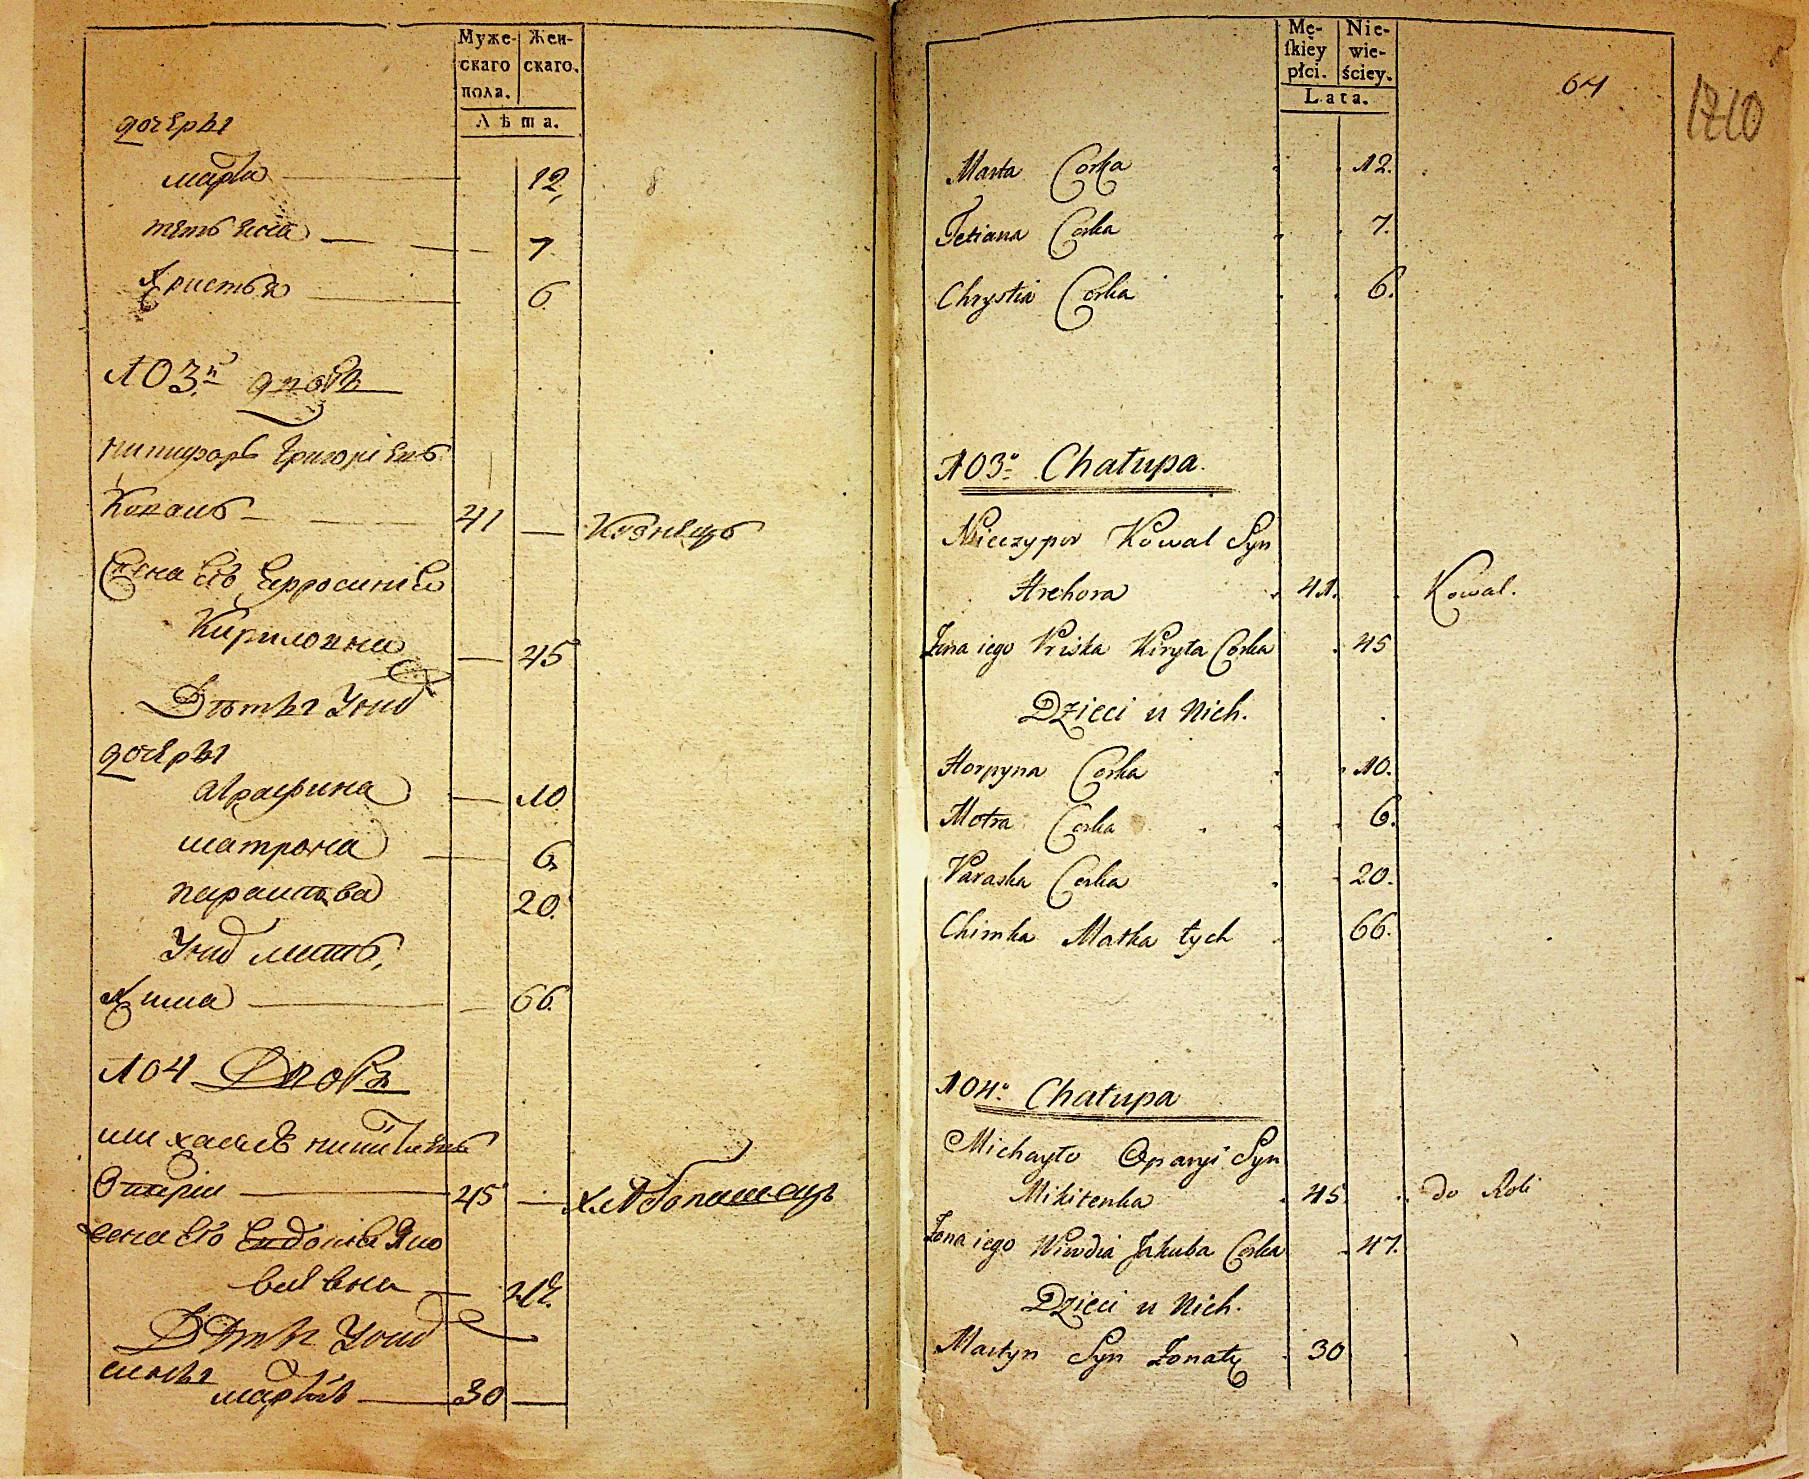 Муже-
скаго
пола.
Жен-
скаго.
Лѣта.
дочеры
марѳа 12
7
Христья 6
103й дворъ
никифоръ Григоріевъ
Коваль 41 Кузнецъ
Жена его Ефросинія
Кириловна 45
Дѣты Унихъ
дочеры
аграфина 10
матрона 6
параскева 20
Унихъ мать
Хима 66
104 Дворъ
михаилъ
45 хлѣбопашецъ
жена его Евдокия Яко
влевна 47
Дѣты Унихъ
сыны
30
Mę-
ſkiey
płci.
Nie-
wie-
ściey.
Lata.
64
1210
Marta Corka 12.
Tetiana Corka 7.
Chrystia Corka 6.
103. Chałupa.
Nieczypor Kowal Syn
Hrehora 41. Kowal.
Żona iego Priska Kiryła Corka 45
Dzieci u Nich.
Horpyna Corka 10.
Motra Corka 6.
Paraska Corka 20.
Chimka Matka tych 66.
104. Chałupa
Michayło Oparyi Syn
Mikitenka 45 do Roli
Żona iego Wiwdia Jakuba Corka 47.
Dzieci u Nich.
Martyn Syn Żonaty 30